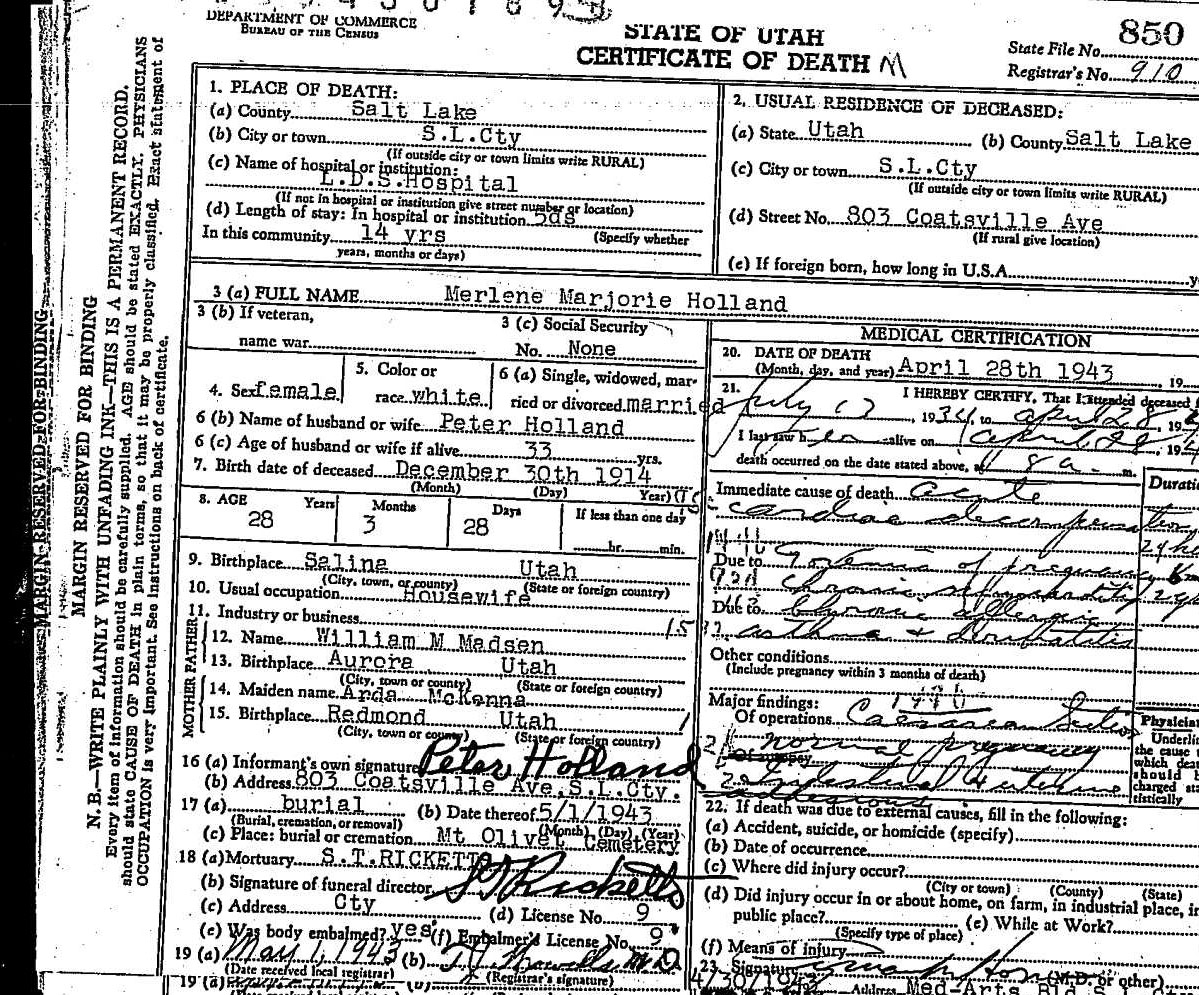 DEPARTMENT OF COMMERCE
BUREAU OF THE CENSUS
STATE OF UTAH
CERTIFICATE OF DEATH M
850
State File No.
Registrar's No. 910
MARGIN RESERVED FOR BINDING
MARGIN RESERVED FOR BINDING
N. B.—WRITE PLAINLY WITH UNFADING INK—THIS IS A PERMANENT RECORD.
Every item of information should be carefully supplied. AGE should be stated EXACTLY. PHYSICIANS
should state CAUSE OF DEATH in plain terms, so that it may be properly classified. Exact statement of
OCCUPATION is very important. See instructions on back of certificate.
1. PLACE OF DEATH:
(a) County Salt Lake
(b) City or town S.L.Cty
(If outside city or town limits write RURAL)
(c) Name of hospital or institution:
L.D.S.Hospital
(If not in hospital or institution give street number or location)
(d) Length of stay: In hospital or institution 5ds
In this community 14 yrs (Specify whether
years, months or days)
2. USUAL RESIDENCE OF DECEASED:
(a) State Utah (b) County Salt Lake
(c) City or town S.L.Cty
(If outside city or town limits write RURAL)
(d) Street No. 803 Coatsville Ave
(If rural give location)
(e) If foreign born, how long in U.S.A.
3 (a) FULL NAME Merlene Marjorie Holland
3 (b) If veteran,
name war
3 (c) Social Security
No. None
4. Sex female
5. Color or
race white
6 (a) Single, widowed, mar-
ried or divorced married
6 (b) Name of husband or wife Peter Holland
6 (c) Age of husband or wife if alive 33 yrs.
7. Birth date of deceased December 30th 1914
(Month) (Day) Year)
8. AGE Years Months Days If less than one day
28 3 28
hr. min.
9. Birthplace Salina Utah
(City, town, or county) (State or foreign country)
10. Usual occupation Housewife
11. Industry or business
FATHER
12. Name William M Madsen
13. Birthplace Aurora Utah
(City, town or county) (State or foreign country)
MOTHER
14. Maiden name Arda McKenna
15. Birthplace Redmond Utah
(City, town or county) (State or foreign country)
16 (a) Informant's own signature Peter Holland
(b) Address 803 Coatsville Ave.S.L.Cty.
17 (a) burial (b) Date thereof 5/1/1943
(Burial, cremation, or removal) (Month) (Day) (Year)
(c) Place: burial or cremation Mt Olivet Cemetery
18 (a) Mortuary S.T.RICKETT
(b) Signature of funeral director S T Ricketts
(c) Address Cty (d) License No. 9
(e) Was body embalmed? yes (f) Embalmer's License No. 9
19 (a) May 1, 1943 (b) M.D.
(Date received local registrar) (Registrar's signature)
19 (a)
MEDICAL CERTIFICATION
20. DATE OF DEATH
(Month, day, and year) April 28th 1943, 19
21. I HEREBY CERTIFY, That I attended deceased
July 1934, to april 28, 19
I last saw her alive on april 28, 19
death occurred on the date stated above, at 8 a. m.
Immediate cause of death acute
cardiac decompensation
Due to Toxemia of pregnancy
chronic nephritis
Due to Chronic allergic
asthma + dermatitis
Other conditions
(Include pregnancy within 3 months of death)
Major findings:
Of operations Caesarean Section
normal pregnancy
Of autopsy
Intestinal + uterine
adhesions
Physician
Underline
the cause
which death
should
charged sta-
tistically
22. If death was due to external causes, fill in the following:
(a) Accident, suicide, or homicide (specify)
(b) Date of occurrence
(c) Where did injury occur?
(City or town) (County) (State)
(d) Did injury occur in or about home, on farm, in industrial place, in
public place? (e) While at Work?
(Specify type of place)
(f) Means of injury
23. Signature (M.D. or other)
4/30/1943 Address Med-Arts Bld S.L.